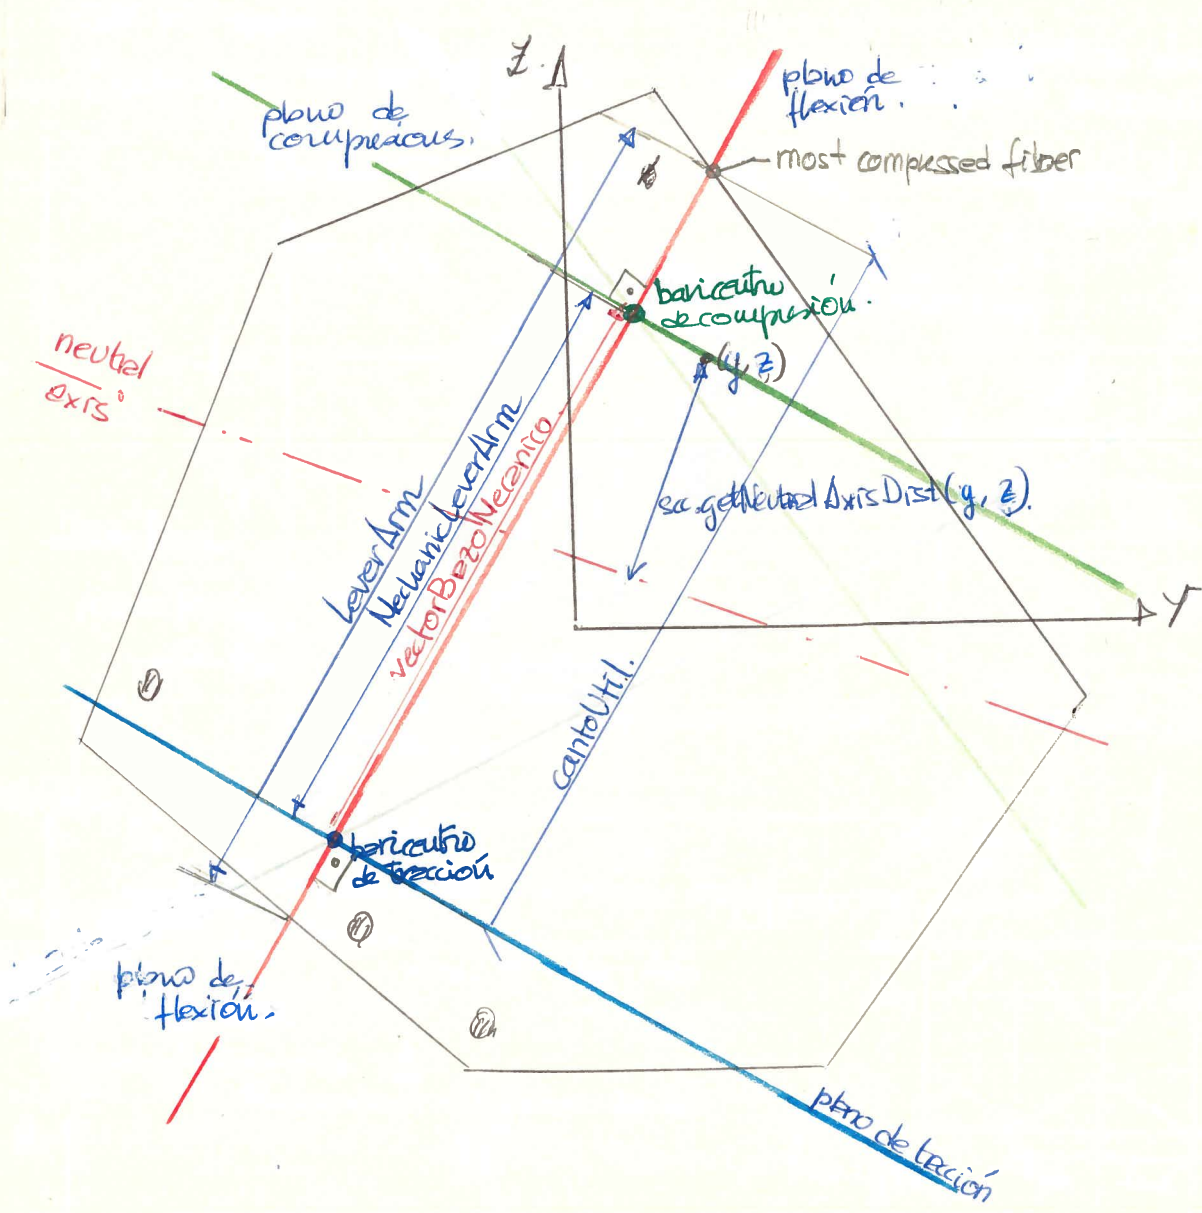 Z
plano de
flexión.
plano de
compresions.
most compressed fiber
baricentro
de compresión.
(y, z)
neutral
axis
LeverArm
MechanicLeverArm
vectorBrazoMecanico
scc.getNeutralAxisDist(y, z).
Y
cantoUtil.
baricentro
de tracción
plano de
flexión.
plano de tracción